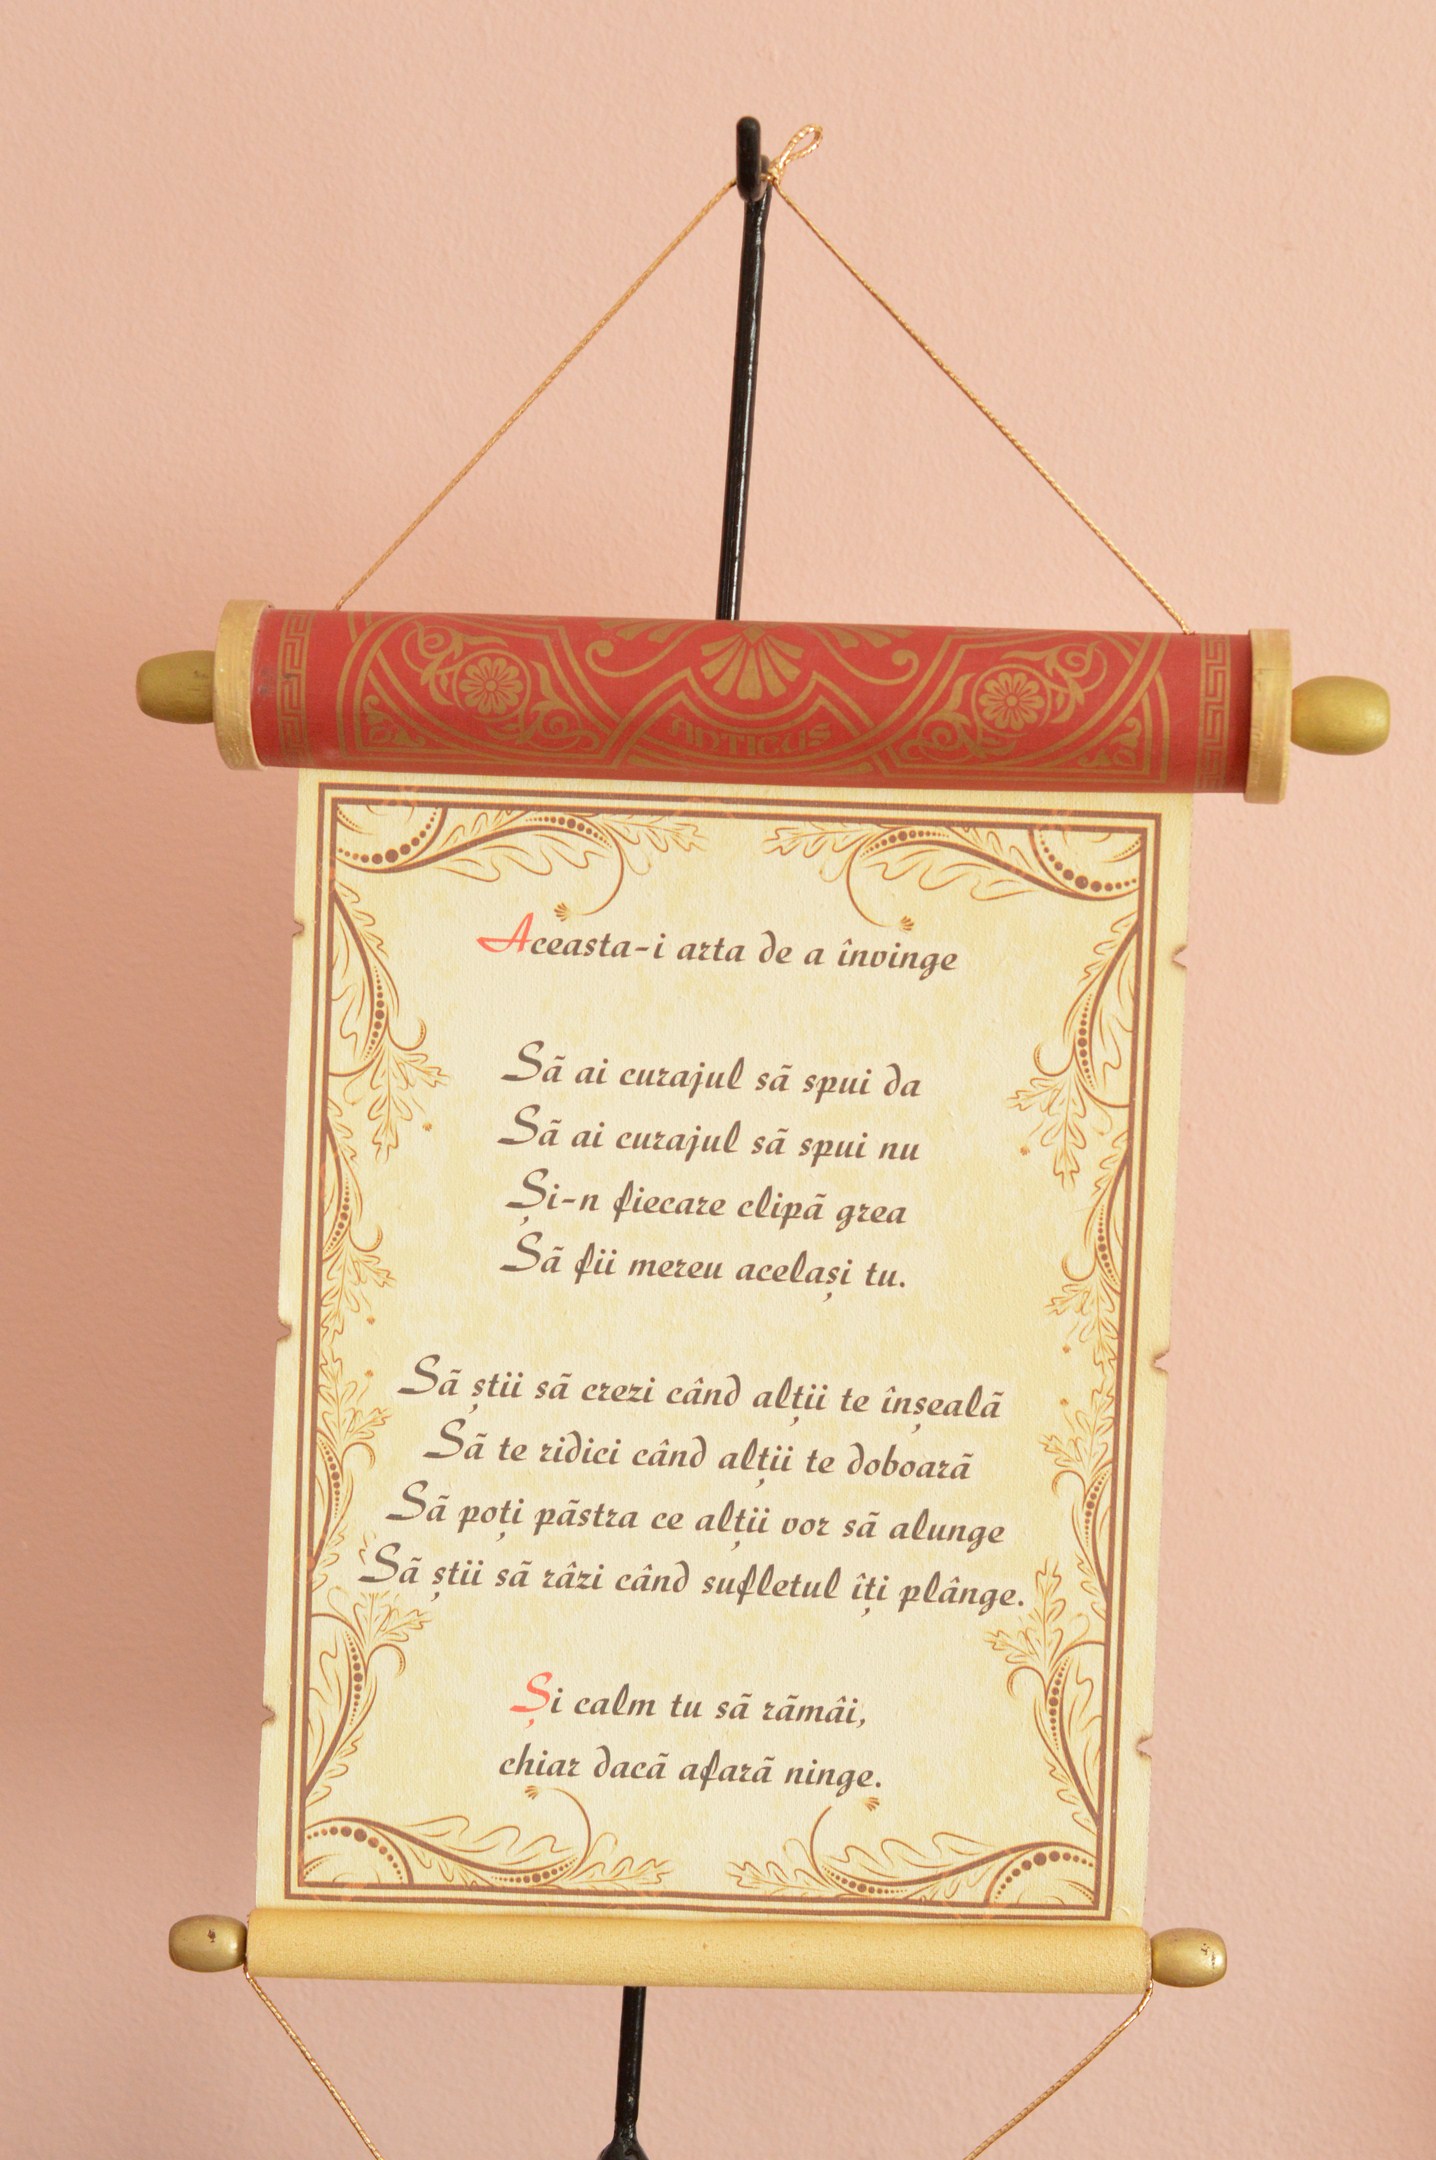 ANTICUS
Aceasta-i arta de a învinge
Sã ai curajul sã spui da
Sã ai curajul sã spui nu
Și-n fiecare clipã grea
Sã fii mereu același tu.
Sã știi sã crezi când alții te înșealã
Sã te ridici când alții te doboarã
Sã poți pãstra ce alții vor sã alunge
Sã știi sã râzi când sufletul îți plânge.
Și calm tu sã rãmâi,
chiar dacã afarã ninge.